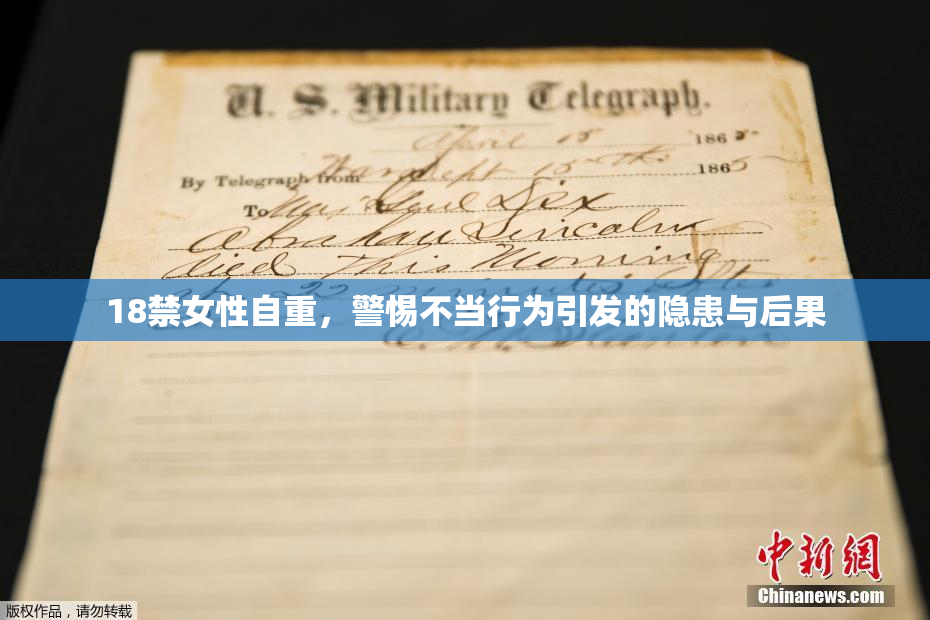 U. S. Military Telegraph.
April 15 1865
By Telegraph from War Dept 15th 1865
To Maj Genl Dix
Abraham Lincoln
died This Morning
at 22 minutes after
18禁女性自重，警惕不当行为引发的隐患与后果
E. M. Stanton
中新網
Chinanews.com
版权作品，请勿转载